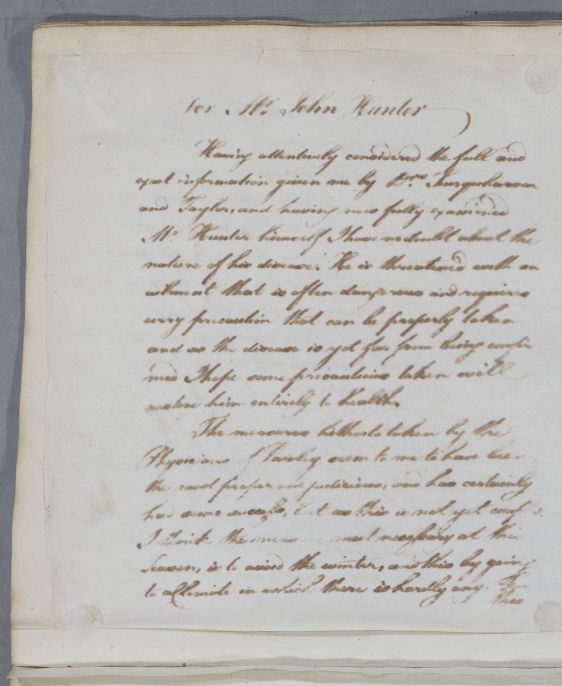 For Mr. John Hunter
Having attentively considered the full and
exact information given me by Drs. Farquharson
and Taylor, and having now fully examined
Mr. Hunter himself I have no doubt about the
nature of his disease. He is threatened with an
ailment that is often dangerous and requires
every precaution that can be properly taken
and as the disease is yet far from being confir
med I hope some precautions taken will
restore him entirely to health.
The measures hitherto taken by the
Physicians of Paisley seem to me to have been
the most proper and judicious, and has certainly
had some success, but as this is not yet
I think the measure most necessary at this
Season, is to avoid the winter, and this by going
to a Climate in which there is hardly any. For
this